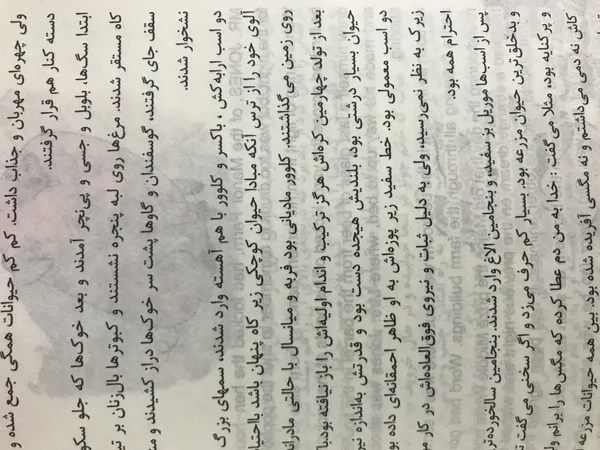 ولی چهره‌ای مهربان و جذاب داشت. کم کم حیوانات همگی جمع شده و
دسته کنار هم قرار گرفتند.
ابتدا سگ‌ها، بلوبل و جسی و پی‌نچر آمدند و بعد خوک‌ها که جلو سکو
کاه مستقر شدند. مرغ‌ها روی لبه پنجره نشستند و کبوترها بال‌زنان بر
سقف جای گرفتند، گوسفندان و گاوها پشت سر خوک‌ها دراز کشیدند و
نشخوار شدند.
دو اسب ارابه‌کش ، باکسر و کلوور با هم آهسته وارد شدند، سمهای بزرگ
آلوی خود را از ترس آنکه مبادا حیوان کوچکی زیر کاه پنهان باشد
روی زمین می‌گذاشتند. کلوور مادیانی بود فربه و میانسال با حالتی
بعد از تولد چهارمین کره‌اش هرگز ترکیب و اندام اولیه‌اش را باز نیافته بود.
حیوان بسیار درشتی بود، بلندیش هیجده دست بود و قدرتش به‌اندازه
دو اسب معمولی بود. خط سفید زیر پوزه‌اش به او ظاهر احمقانه‌ای داده
زیرک به نظر نمی‌رسید، ولی به دلیل ثبات و نیروی فوق‌العاده‌اش در کار
احترام همه بود.
پس از اسب‌ها موریل بز سفید، و بنجامین الاغ وارد شدند. بنجامین
و بدخلق‌ترین حیوان مزرعه بود. بسیار کم حرف می‌زد و اگر سخنی می‌گفت
و پرکنایه بود، مثلا می‌گفت : خدا به من دم عطا کرده که مگس‌ها را برانم
کاش نه دمی می‌داشتم و نه مگسی آفریده شده بود. بین همه حیوانات مزرعه